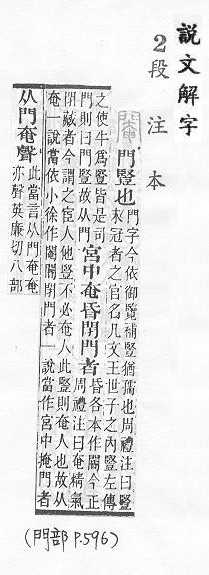 說文解字
2段注本
閹
門豎也
門字今依御覽補豎猶孺也周禮注曰豎
未冠者之官名凡文王世子之內豎左傳
之使牛爲豎皆是司
門則曰門豎故从門
宮中奄昏閉門者
昏各本作閽今正
周禮注曰奄精氣
閉藏者今謂之宦人他豎不必奄人此豎則奄人也故从
奄一說當依小徐作閽閽閉門者一說當作宮中掩門者
从門奄聲
此當言从門奄奄
亦聲英廉切八部
(門部 P.596)